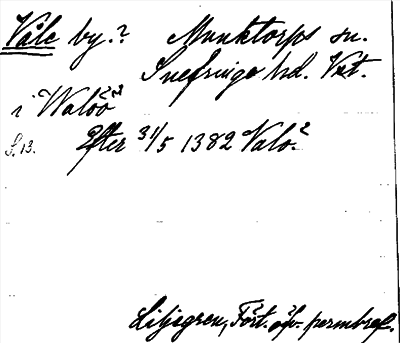 Våle by.? Munktorps sn.
Snefringe hd. Vst.
i Waloö
S. 13. Efter 31/5 1382 Valo.
Liljegren, Fört. öfv. permbref.